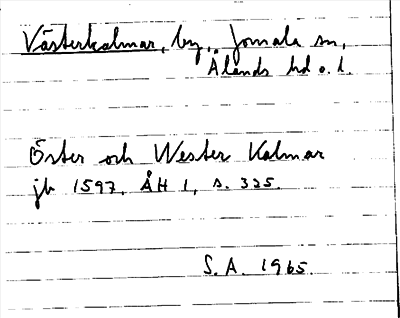 Västerkalmar, by, Jomala sn,
Ålands hd o. l.
Öster och Wester Kalmar
jb 1597, ÅH 1, s. 325.
S. A. 1965.